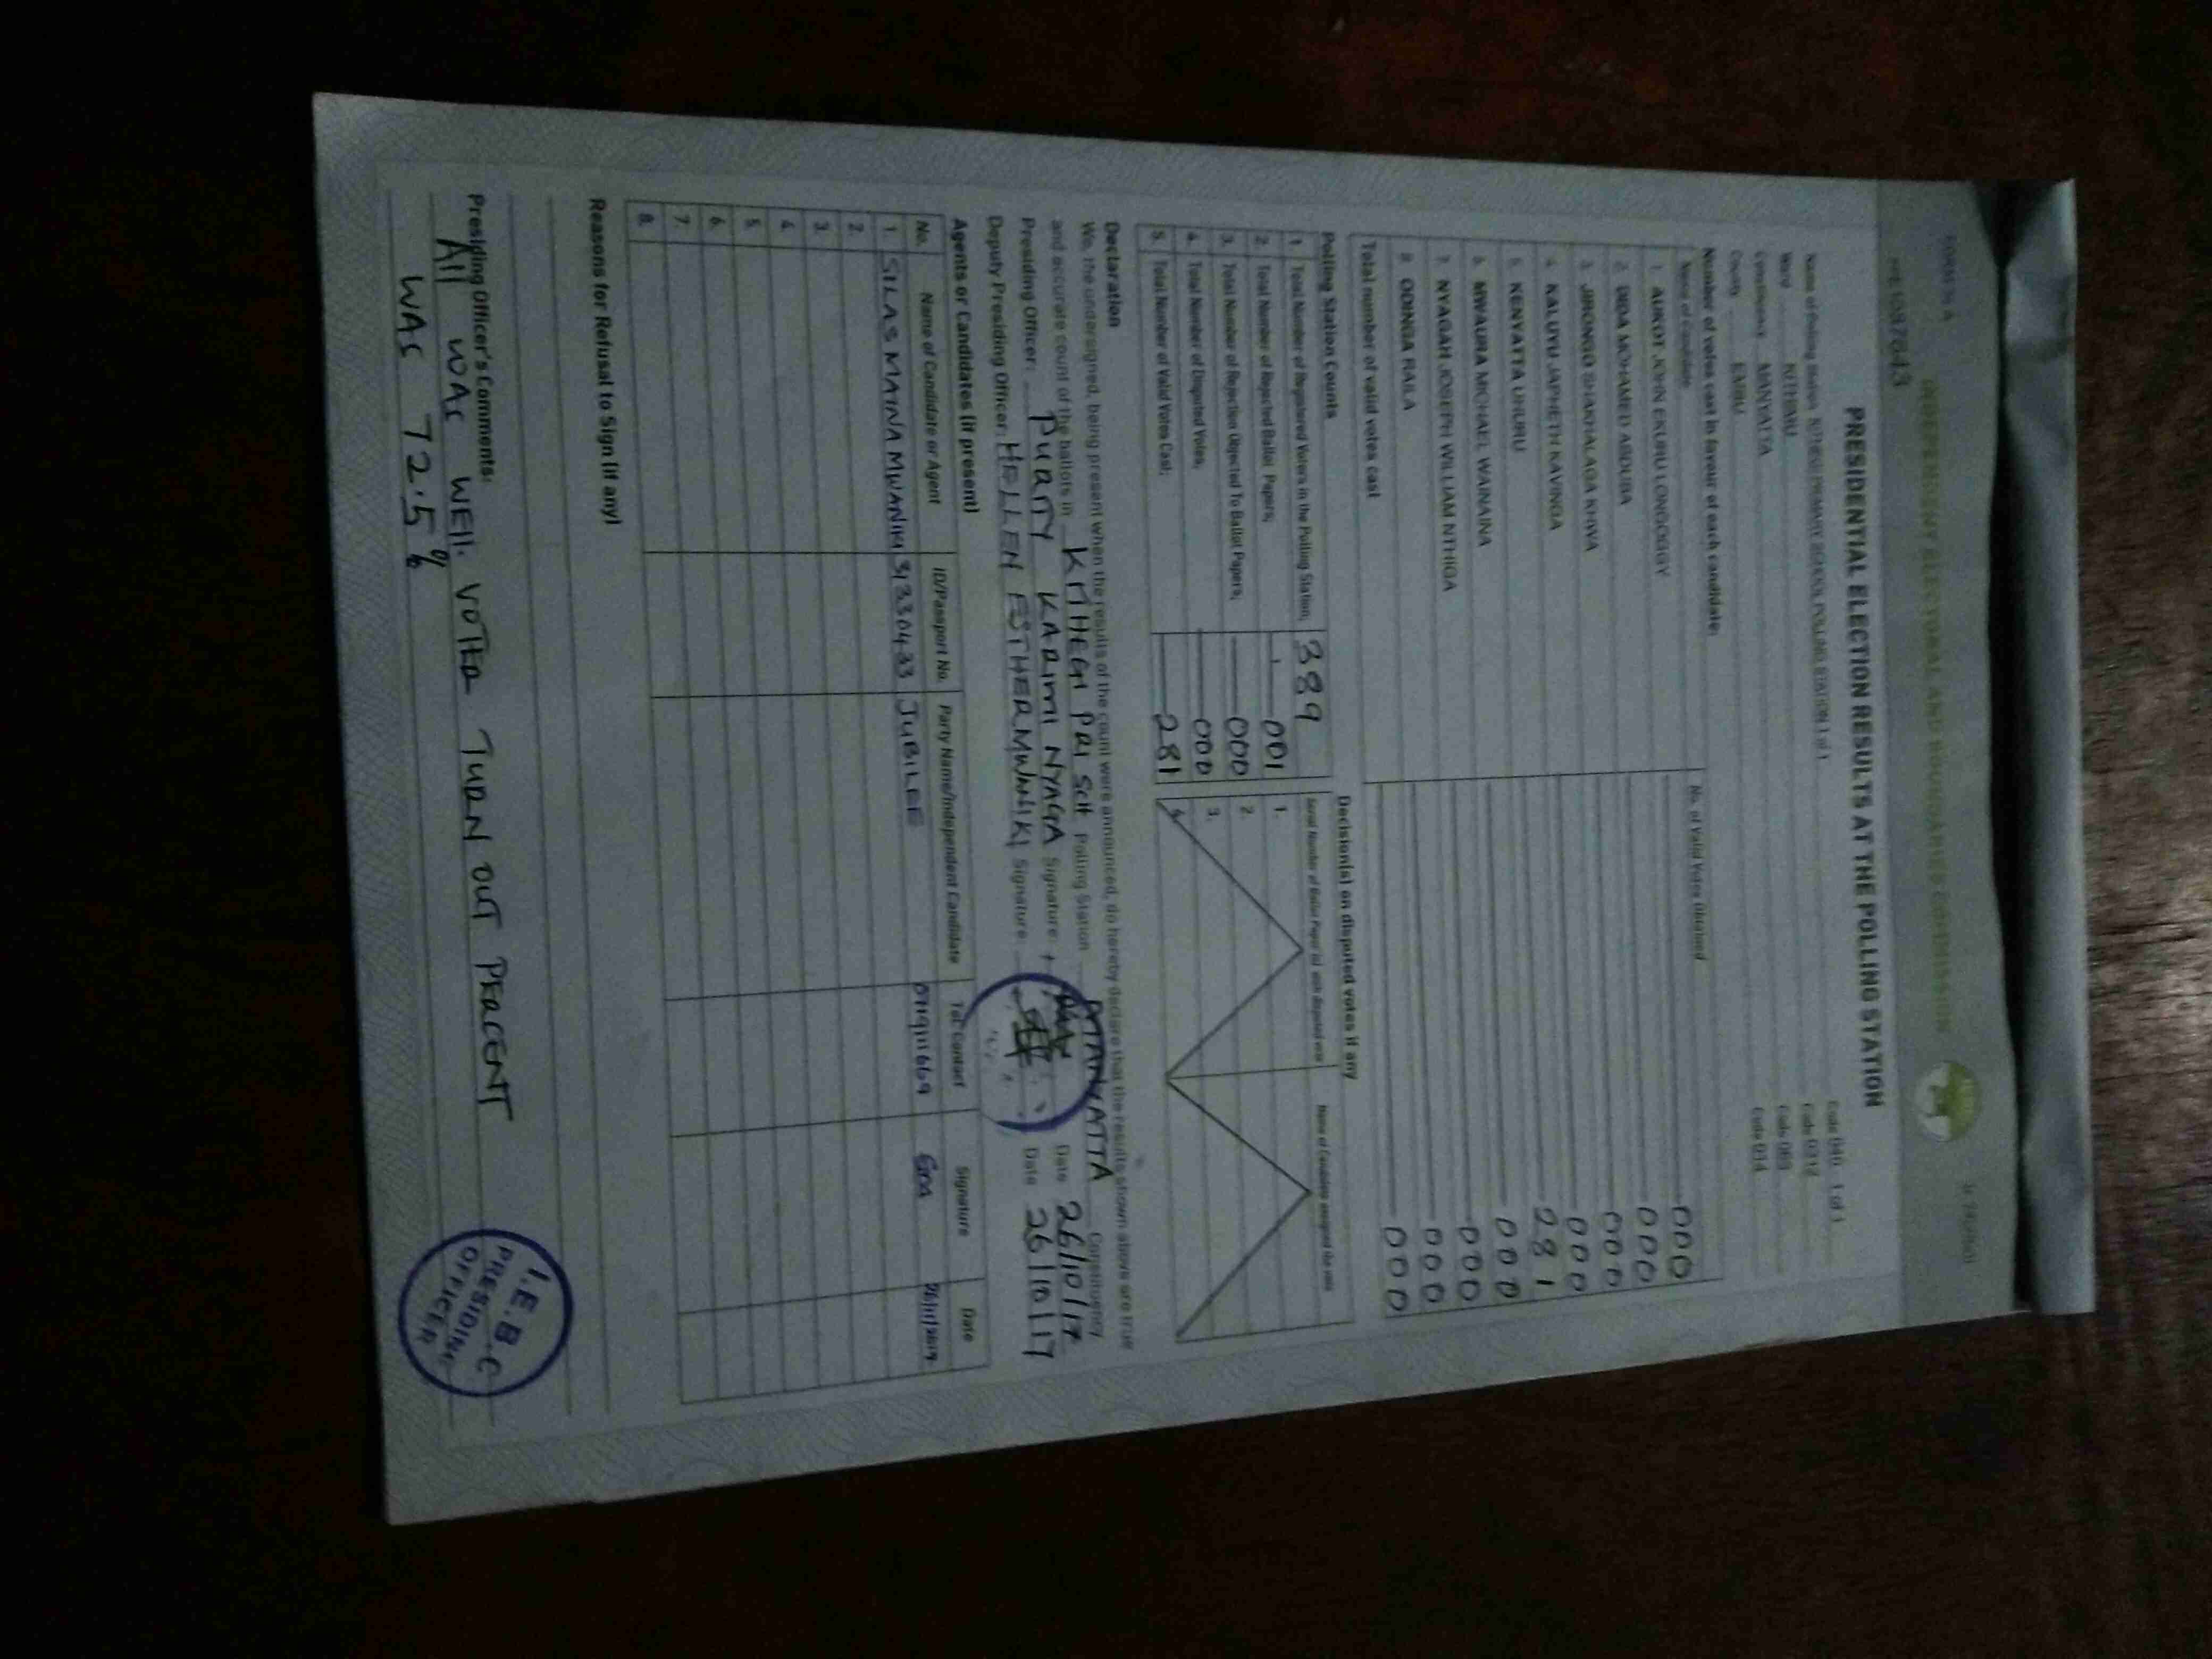 FORM 34A
INDEPENDENT ELECTORAL AND BOUNDARIES COMMISSION
PRESIDENTIAL ELECTION RESULTS AT THE POLLING STATION
Name of Polling Station KITHEGI PRIMARY SCHOOL POLLING STATION 1 of 1 Code 046 1 of 1
Ward KITHIMU
Constituency MANYATTA
County EMBU Code 014
Number of votes cast in favour of each candidate:
Name of Candidate No. of Valid Votes Obtained
1. AUKOT JOHN EKURU LONGOGGY 000
2. DIDA MOHAMED ABDUBA 000
3. JIRONGO SHAKHALAGA KHWA 000
4. KALUYU JAPHETH KAVINGA 000
5. KENYATTA UHURU 281
6. MWAURA MICHAEL WAINAINA 000
7. NYAGAH JOSEPH WILLIAM NTHIGA 000
8. ODINGA RAILA 000
Total number of valid votes cast 000
Polling Station Counts
1. Total Number of Registered Voters in the Polling Station; 389
2. Total Number of Rejected Ballot Papers; 001
3. Total Number of Rejection Objected To Ballot Papers; 000
4. Total Number of Disputed Votes; 000
5. Total Number of Valid Votes Cast; 281
Decision(s) on disputed votes if any
1.
2.
3.
4.
Declaration
We, the undersigned, being present when the results of the count were announced, do hereby declare that the results shown above are true
and accurate count of the ballots in KITHEGI PRI SCH Polling Station MANYATTA Constituency
Presiding Officer: PURITY KARIMI NYAGA Signature: Date 26/10/17
Deputy Presiding Officer: HELLEN ESTHER MWANIKI Signature: Date 26/10/17
Agents or Candidates (if present)
No. Name of Candidate or Agent ID/Passport No. Party Name/Independent Candidate Tel: Contact Signature Date
1. SILAS MAINA MWANIKI 31330433 JUBILEE
2.
3.
4.
5.
6.
7.
8.
Reasons for Refusal to Sign (if any)
Presiding Officer's Comments:
All WAS WELL. VOTER TURN OUT PERCENT
WAS 72.5%
I.E.B.C
PRESIDING
OFFICER